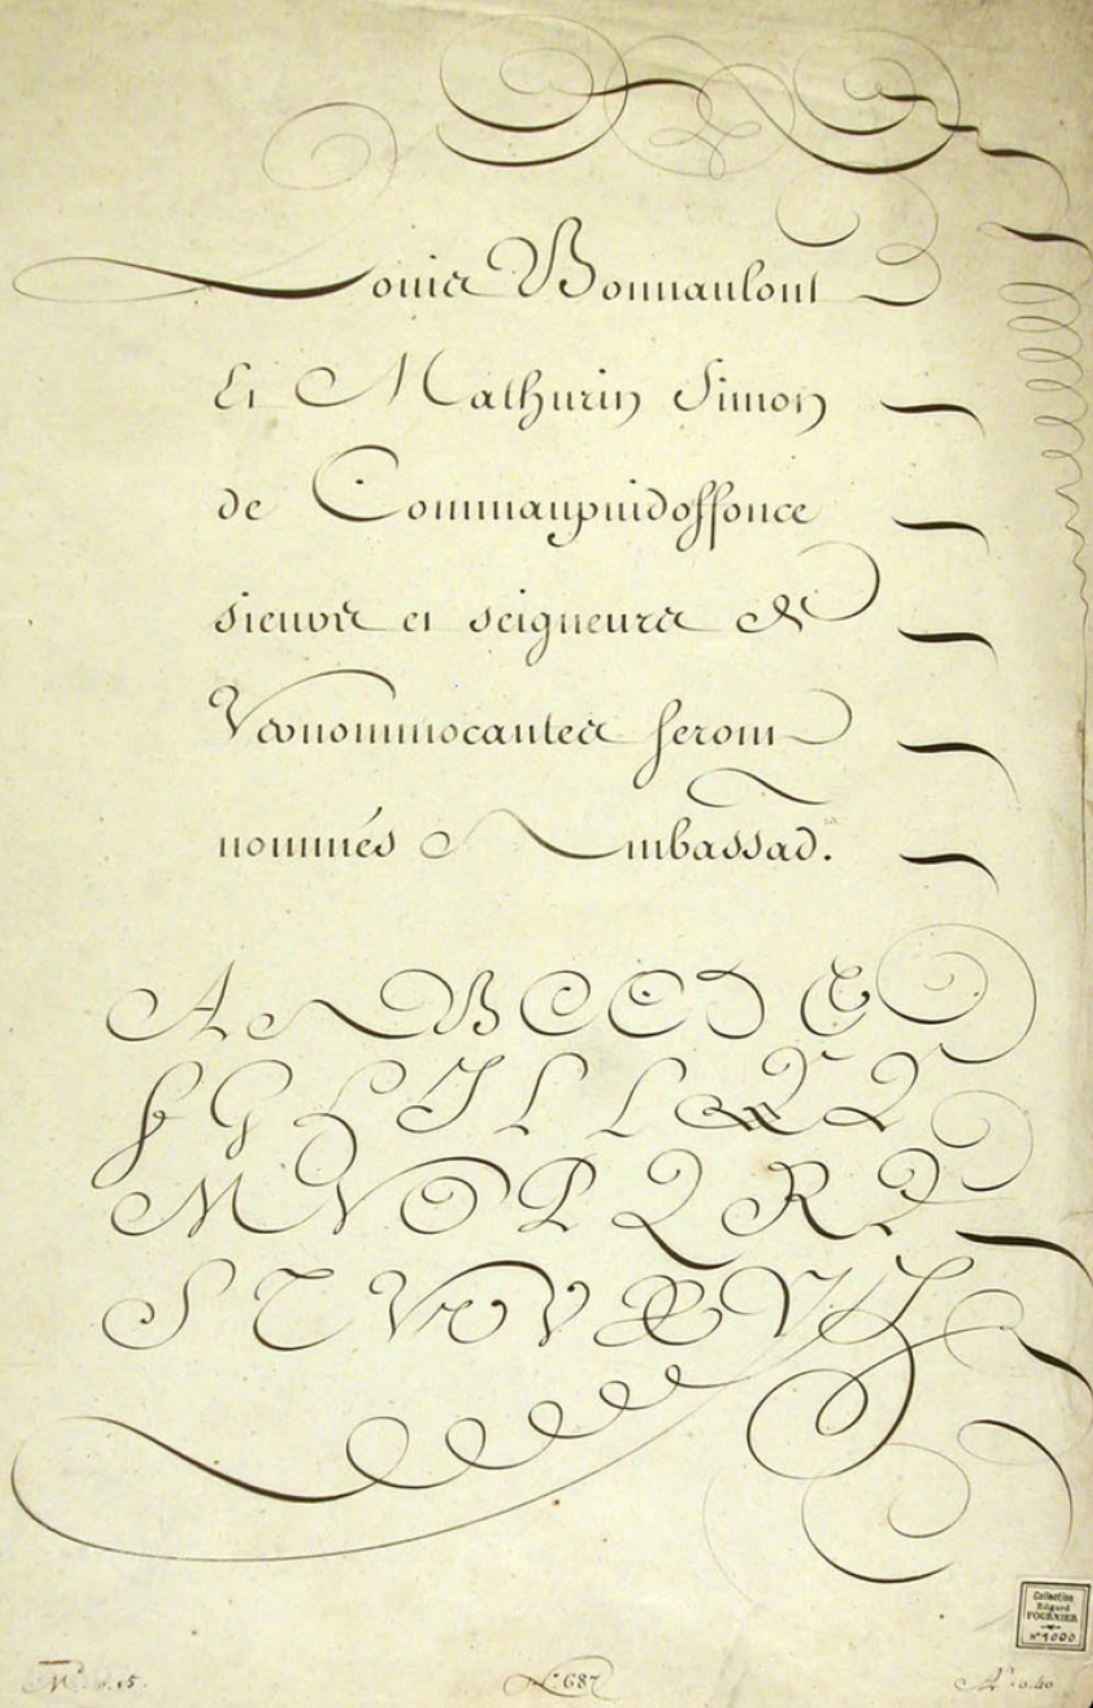 Louis Bonnaulont
Et Mathurin Simon
de Commanpuidoffonce
sieurs et seigneurs de
seront
nommés Ambassad.
A B C C D E
F G H I L L
M N O P Q R
S T V
Collection
Edgard
FOURNIER
n° 1000
N.° 687